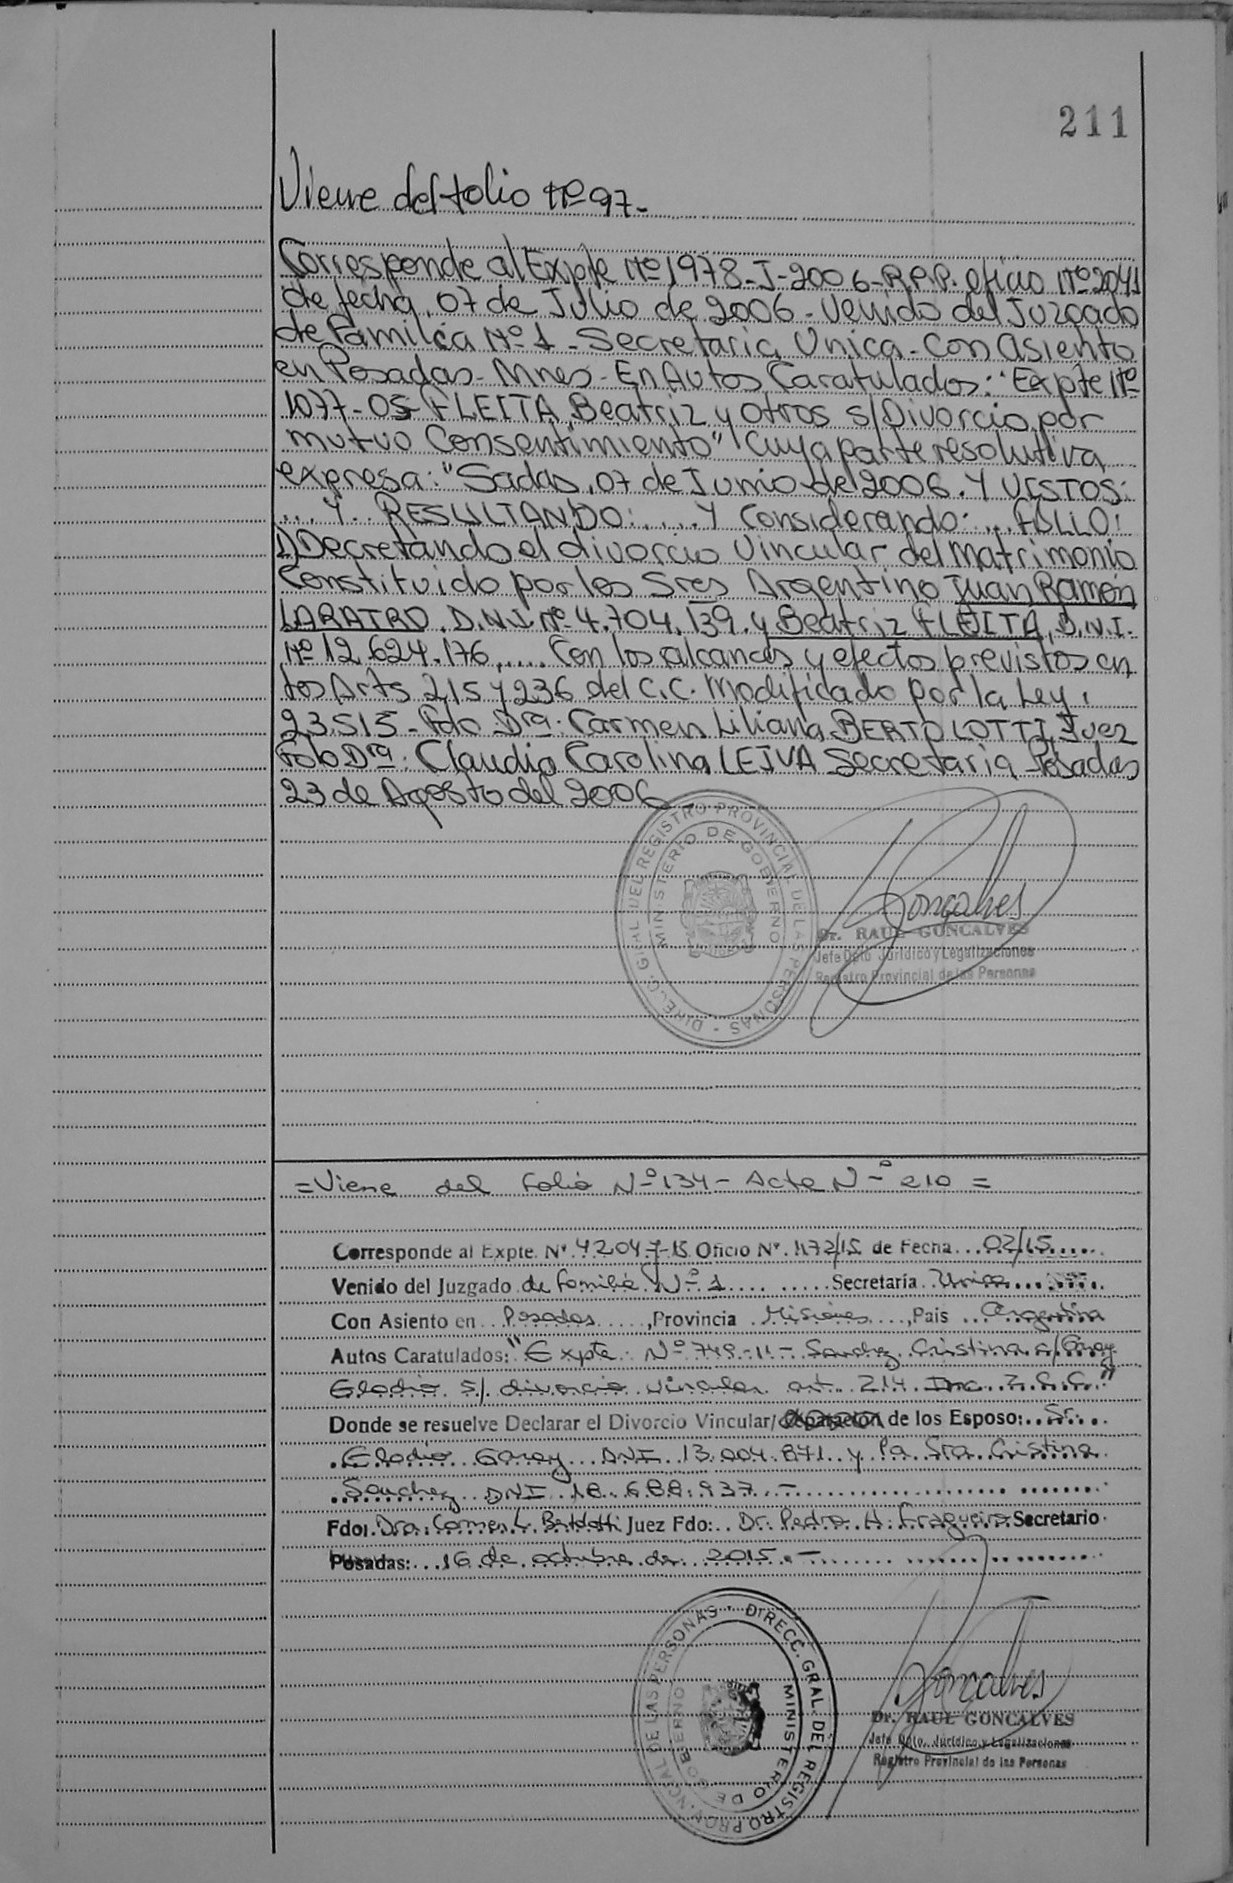 211
Viene del folio Nº 97-
Corresponde al Expte Nº 1978-J-2006-R.P.P. oficio Nº 2041
de fecha, 07 de Julio de 2006 - Venido del Juzgado
de Familia Nº 1 - Secretaria Unica - Con asiento
en Posadas - Mnes - En Autos Caratulados: "Expte Nº
1077-05 FLEITA Beatriz y otros s/Divorcio por
mutuo Consentimiento" Cuya parte resolutiva
expresa: "Sadas, 07 de Junio de 2006. Y VISTOS:
... Y RESULTANDO: ..... Y Considerando: ... FALLO:
1) Decretando el divorcio Vincular del matrimonio
Constituido por los Sres Argentino Juan Ramón
LARATRO, D.N.I. Nº 4.704.139. y Beatriz FLEITA, D.N.I.
Nº 12.624.176, ..... Con los alcances y efectos previstos en
los Arts 215 y 236 del C.C. Modificado por la Ley,
23.515 - Fdo Dra. Carmen Liliana BERTOLOTTI, Juez
Fdo Dra: Claudia Carolina LEIVA Secretaria - Posadas
23 de Agosto del 2006
DIREC. GRAL. DEL REGISTRO PROVINCIAL DE LAS PERSONAS
MINISTERIO DE GOBIERNO
Goncalves
Dr. RAUL GONCALVES
Jefe Dpto. Jurídico y Legalizaciones
Registro Provincial de las Personas
= Viene del folio Nº 134 - Acta Nº 210 =
Corresponde al Expte. Nº 4204-J-15 Oficio Nº. 1172/15 de Fecha ... 02/15.....
Venido del Juzgado de familia Nº 1 ......... Secretaría Unica
Con Asiento en Posadas ....., Provincia Misiones ...., País Argentina
Autos Caratulados: "Expte. Nº 748-11- Sanchez Cristina c/Garay
Eladio s/ divorcio vincular art. 214 Inc. 2 C.C."
Donde se resuelve Declarar el Divorcio Vincular/Separación de los Esposo: Sr.
Eladio Garay DNI 13.004.871 y la Sra. Cristina
Sanchez DNI 18.688.937 -
Fdo: Dra. Carmen L. Bertolotti Juez Fdo: Dr. Pedro A. Fragueiro Secretario
Posadas: ...16 de octubre de 2015.-
DIRECC. GRAL. DEL REGISTRO PROVINCIAL DE LAS PERSONAS
MINISTERIO DE GOBIERNO
Goncalves
Dr. RAUL GONCALVES
Jefe Dpto. Jurídico y Legalizaciones
Registro Provincial de las Personas